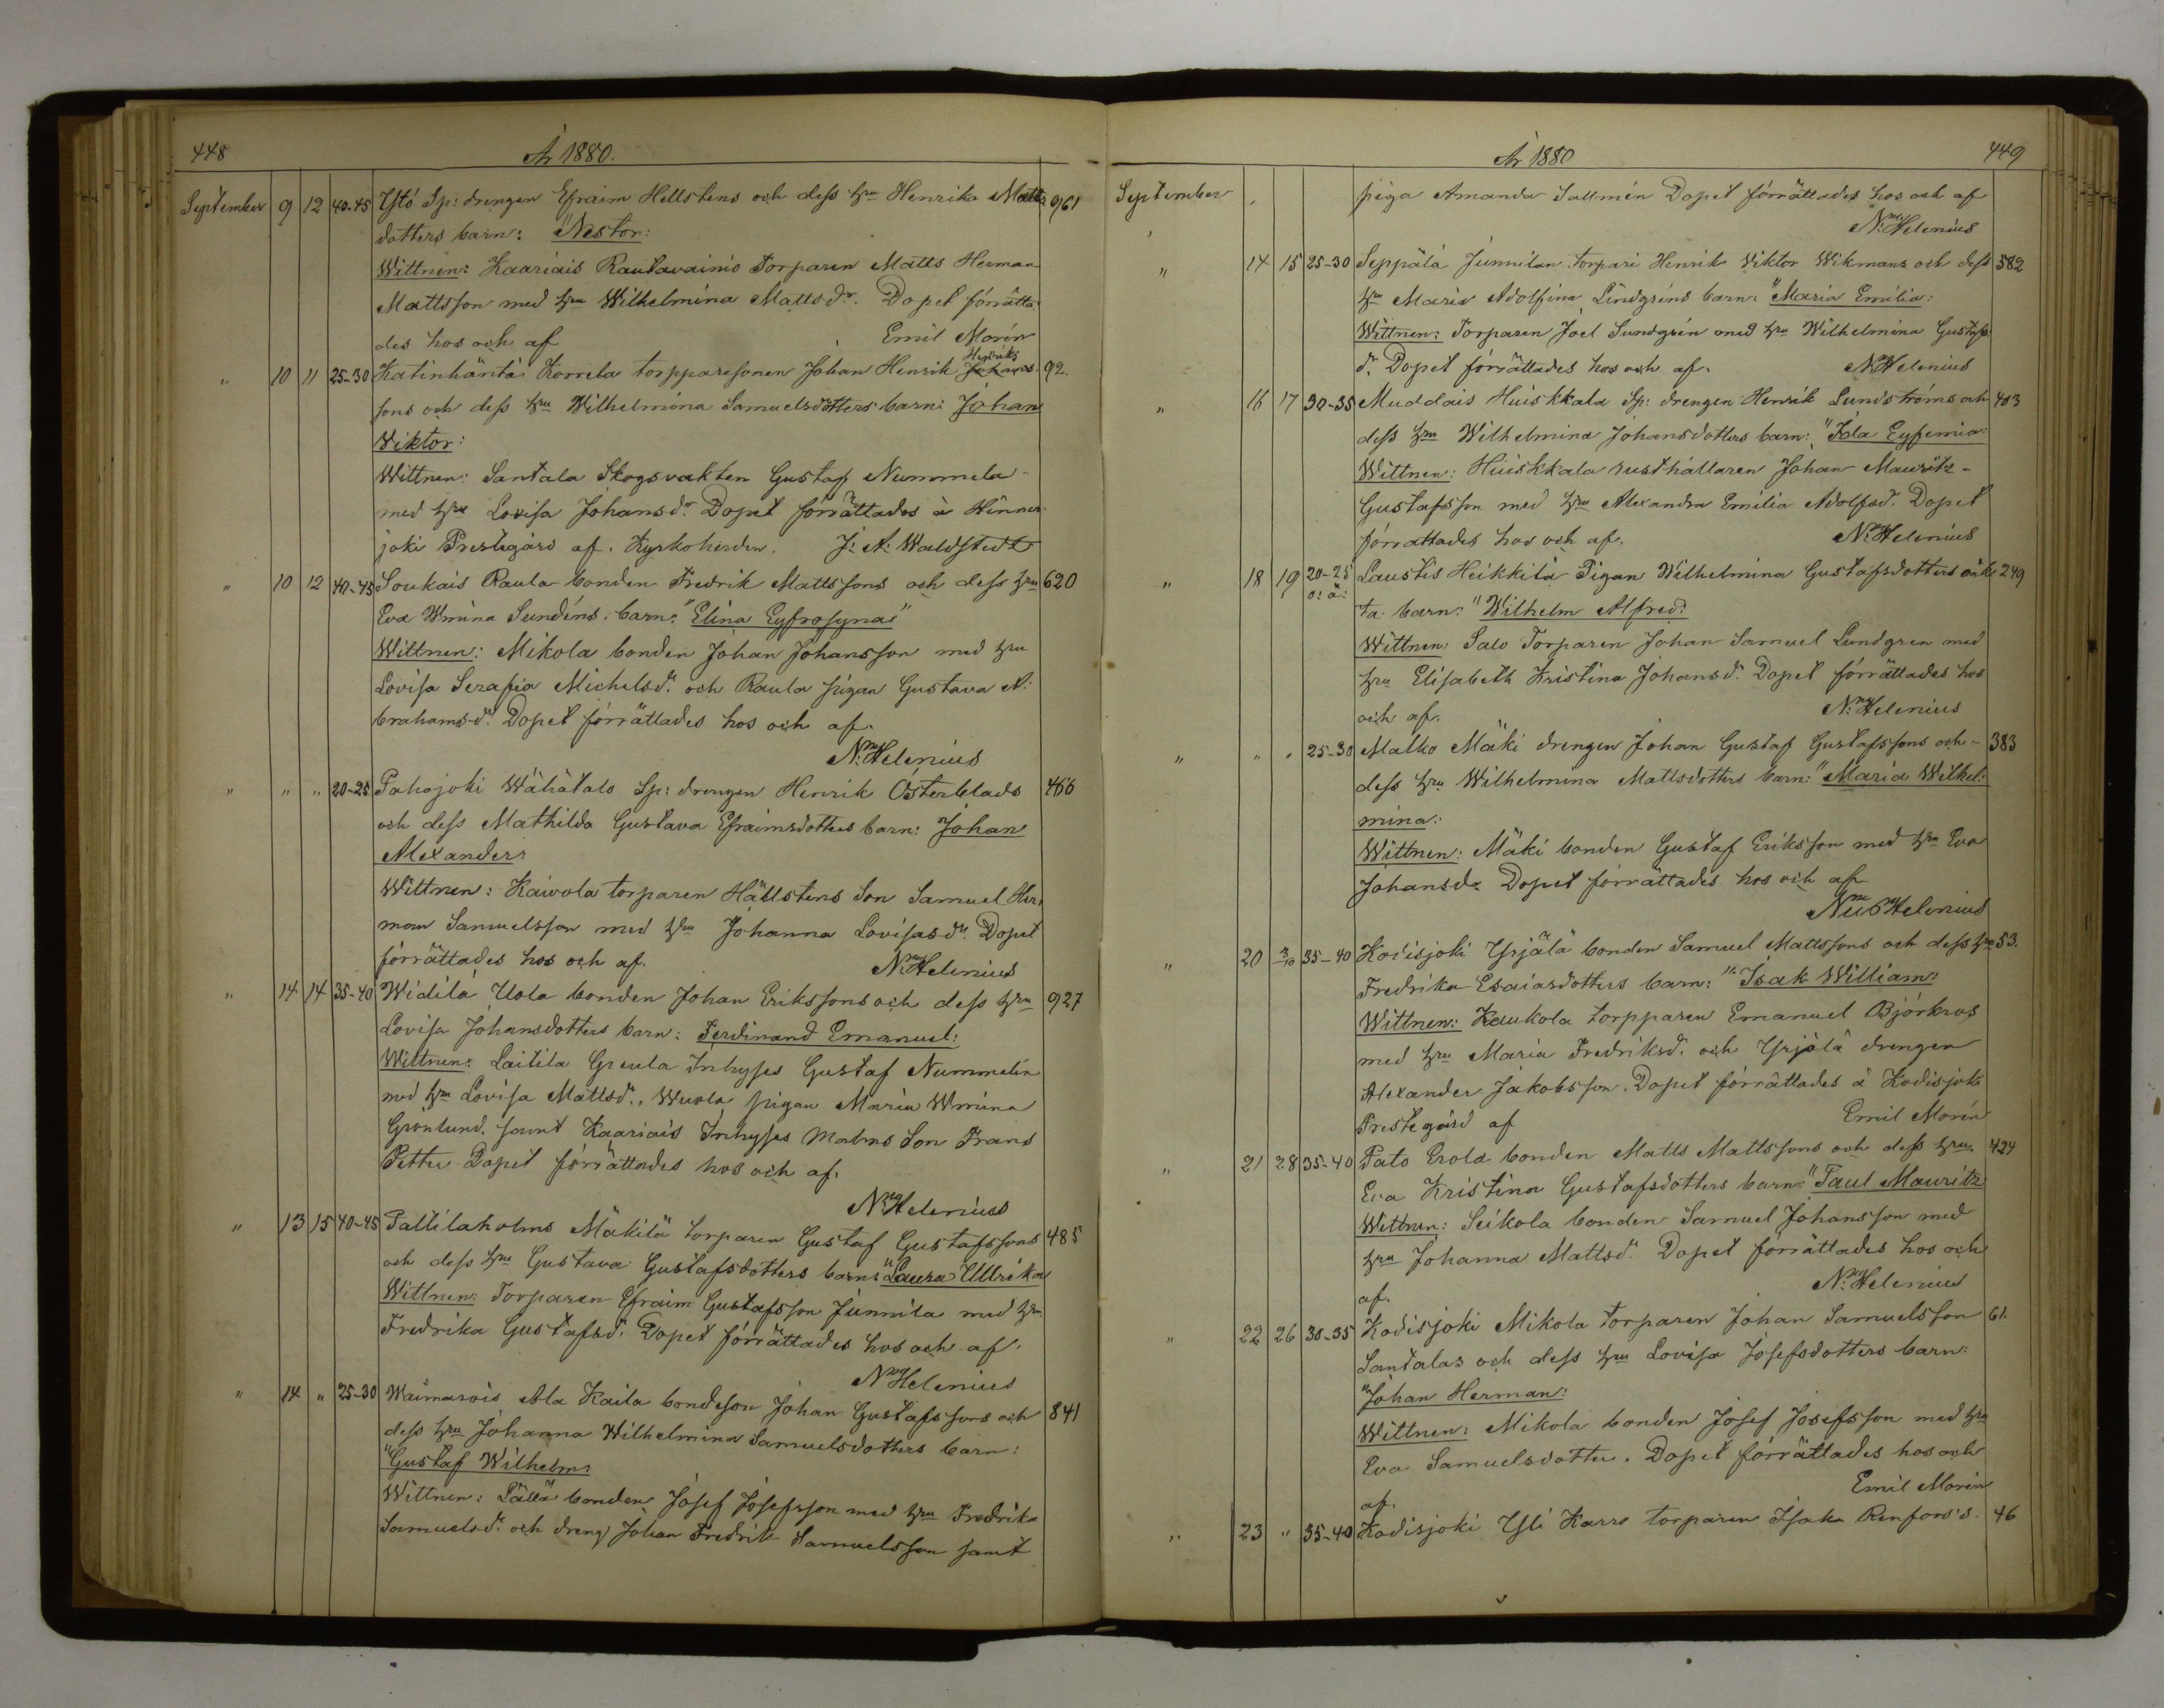 448 År 1880.
September 9 12 40-45 Ystö Sp: drengen Efraim Hellstens och dess hru Henrika Matts 961
dotters barn: "Nestor:
Wittnen: Kaariais Rautavainio Torparen Matts Herman
Mattsson med hru Wilhelmina Mattsdr. Dopet förrätta
des hos och af Emil Morin
" 10 11 25-30 Katinhäntä Korrela torpparesonen Johan Henrik Henriks 92.
sons och dess hru Wilhelmina Samuelsdotters barn: Johan
Wiktor:
Wittnen: Santala Skogsvakten Gustaf Nummela
med hru Lovisa Johansdr. Dopet förrättades å Hinner
joki Prestegård af. Kyrkoherden. J: A: Waldstedt
" 10 12 40-45 Soukais Raula bonden Fredrik Mattssons och dess hru 620
Eva Wmina Sundéns. barn: "Elina Eyfrosyna"
Wittnen: Mikola bonden Johan Johansson med hru
Lovisa Serafia Michelsdr. och Raula pigan Gustava A:
brahamsdr. Dopet förrättades hos och af.
N: Helenius
" " " 20-25 Pahojoki Wähätalo Sp: drengen Henrik Österblads 466
och dess Mathilda Gustava Efraimsdotters barn: Johan
Alexander:
Wittnen: Kaivola torparen Hällstens Son Samuel Her,
man Samuelsson med hru Johanna Lovisasdr. Dopet
förrättades hos och af. N: Helenius
" 14 14 35-40 Widilä Uola bonden Johan Erikssons och dess hru 927
Lovisa Johansdotters barn: Ferdinand Emanuel:
Wittnen: Laitila Greula Inhyses Gustaf Nummelin
med hru Lovisa Mattsdr., Wuola pigan Maria Wmina
Grönlund. samt Kaariais Inhyses Malms Son Frans
Petter Dopet förrättades hos och af.
N: Helenius
" 13 15 40-45 Pallilaholms Mäkilä torparen Gustaf Gustafssons 485
och dess hru Gustava Gustafsdotters barn: "Laura Ullrika
Wittnen: Torparen Efraim Gustafsson Junnila med hru
Fredrika Gustafsdr. Dopet förrättades hos och af.
N: Helenius
" 14 " 25-30 Waimarois Ala Kaila bondeson Johan Gustafssons och 841
dess hru Johanna Wilhelmina Samuelsdotters barn:
"Gustaf Wilhelm:
Wittnen: Källä bonden Josef Josefsson med hru Fredrika
Samuelsdr. och dreng Johan Fredrik Samuelsson samt
År 1880 449
September piga Amanda Sallmén Dopet förrättades hos och af
N: Helenius
" 14 15 25-30 Seppälä Junnilan torpari Henrik Viktor Wikmans och dess 582
hru Maria Adolfina Lindgréns barn: "Maria Emilia:
Wittnen: Torparen Joel Sundgrén med hru Wilhelmina Gustafs
dr. Dopet förrättades hos och af. N: Helenius
" 16 17 30-35 Muddais Huiskkala Sp: drengen Henrik Lundströms och 403
dess hru Wilhelmina Johansdotters barn: "Ida Eyfemia:
Wittnen: Huiskkala rusthållaren Johan Mauritz-
Gustafsson med hru Alexandra Emilia Adolfsd. Dopet
förrättades hos och af. N: Helenius
" 18 19 20-25 Laustis Heikkilä Pigan Wilhelmina Gustafsdotters oäk 249
o: ä: ta barn: "Wilhelm Alfred:
Wittnen: Salo Torparen Johan Samuel Lundgren med
hru Elisabeth Kristina Johansdr. Dopet förrättades hos
och af. N: Helenius
" " " 25-30 Malko Mäki drengen Johan Gustaf Gustafssons och- 383
dess hru Wilhelmina Mattsdotters barn: "Maria Wilhel:
mina:
Wittnen: Mäki bonden Gustaf Eriksson med hru Eva
Johansdr. Dopet förrättades hos och af
Helenius
" 20 3/10 35-40 Kodisjoki Yrjälä bonden Samuel Mattssons och dess hru 53.
Fredrika Esaiasdotters barn: "Isak William:
Wittnen: Kaukola torpparen Emanuel Björkros
med hru Maria Fredriksd. och Yrjälä drengen
Alexander Jakobsson. Dopet förrättades å Kodisjoki
Prestegård af Emil Morin
" 21 28 35-40 Pato Erola bonden Matts Mattssons och dess hru 424
Eva Kristina Gustafsdotters barn: "Paul Mauritz
Wittnen: Seikola bonden Samuel Johansson med
hru Johanna Mattsdr. Dopet förrättades hos och
af. N: Helenius
" 22 26 30-35 Kodisjoki Mikola torparen Johan Samuelsson 61.
Santalas och dess hru Lovisa Josefsdotters barn:
"Johan Herman:
Wittnen: Mikola bonden Josef Josefsson med hru
Eva Samuelsdotter. Dopet förrättades hos och
af. Emil Morin
" 23 " 35-40 Kodisjoki Yli Karro torparen Isaks Renfors's. 46